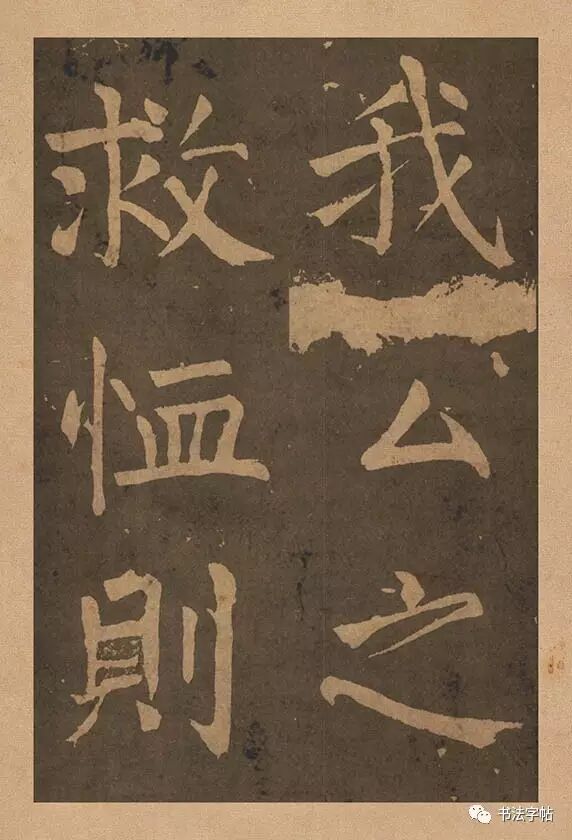 我公之
救恤則
书法字帖